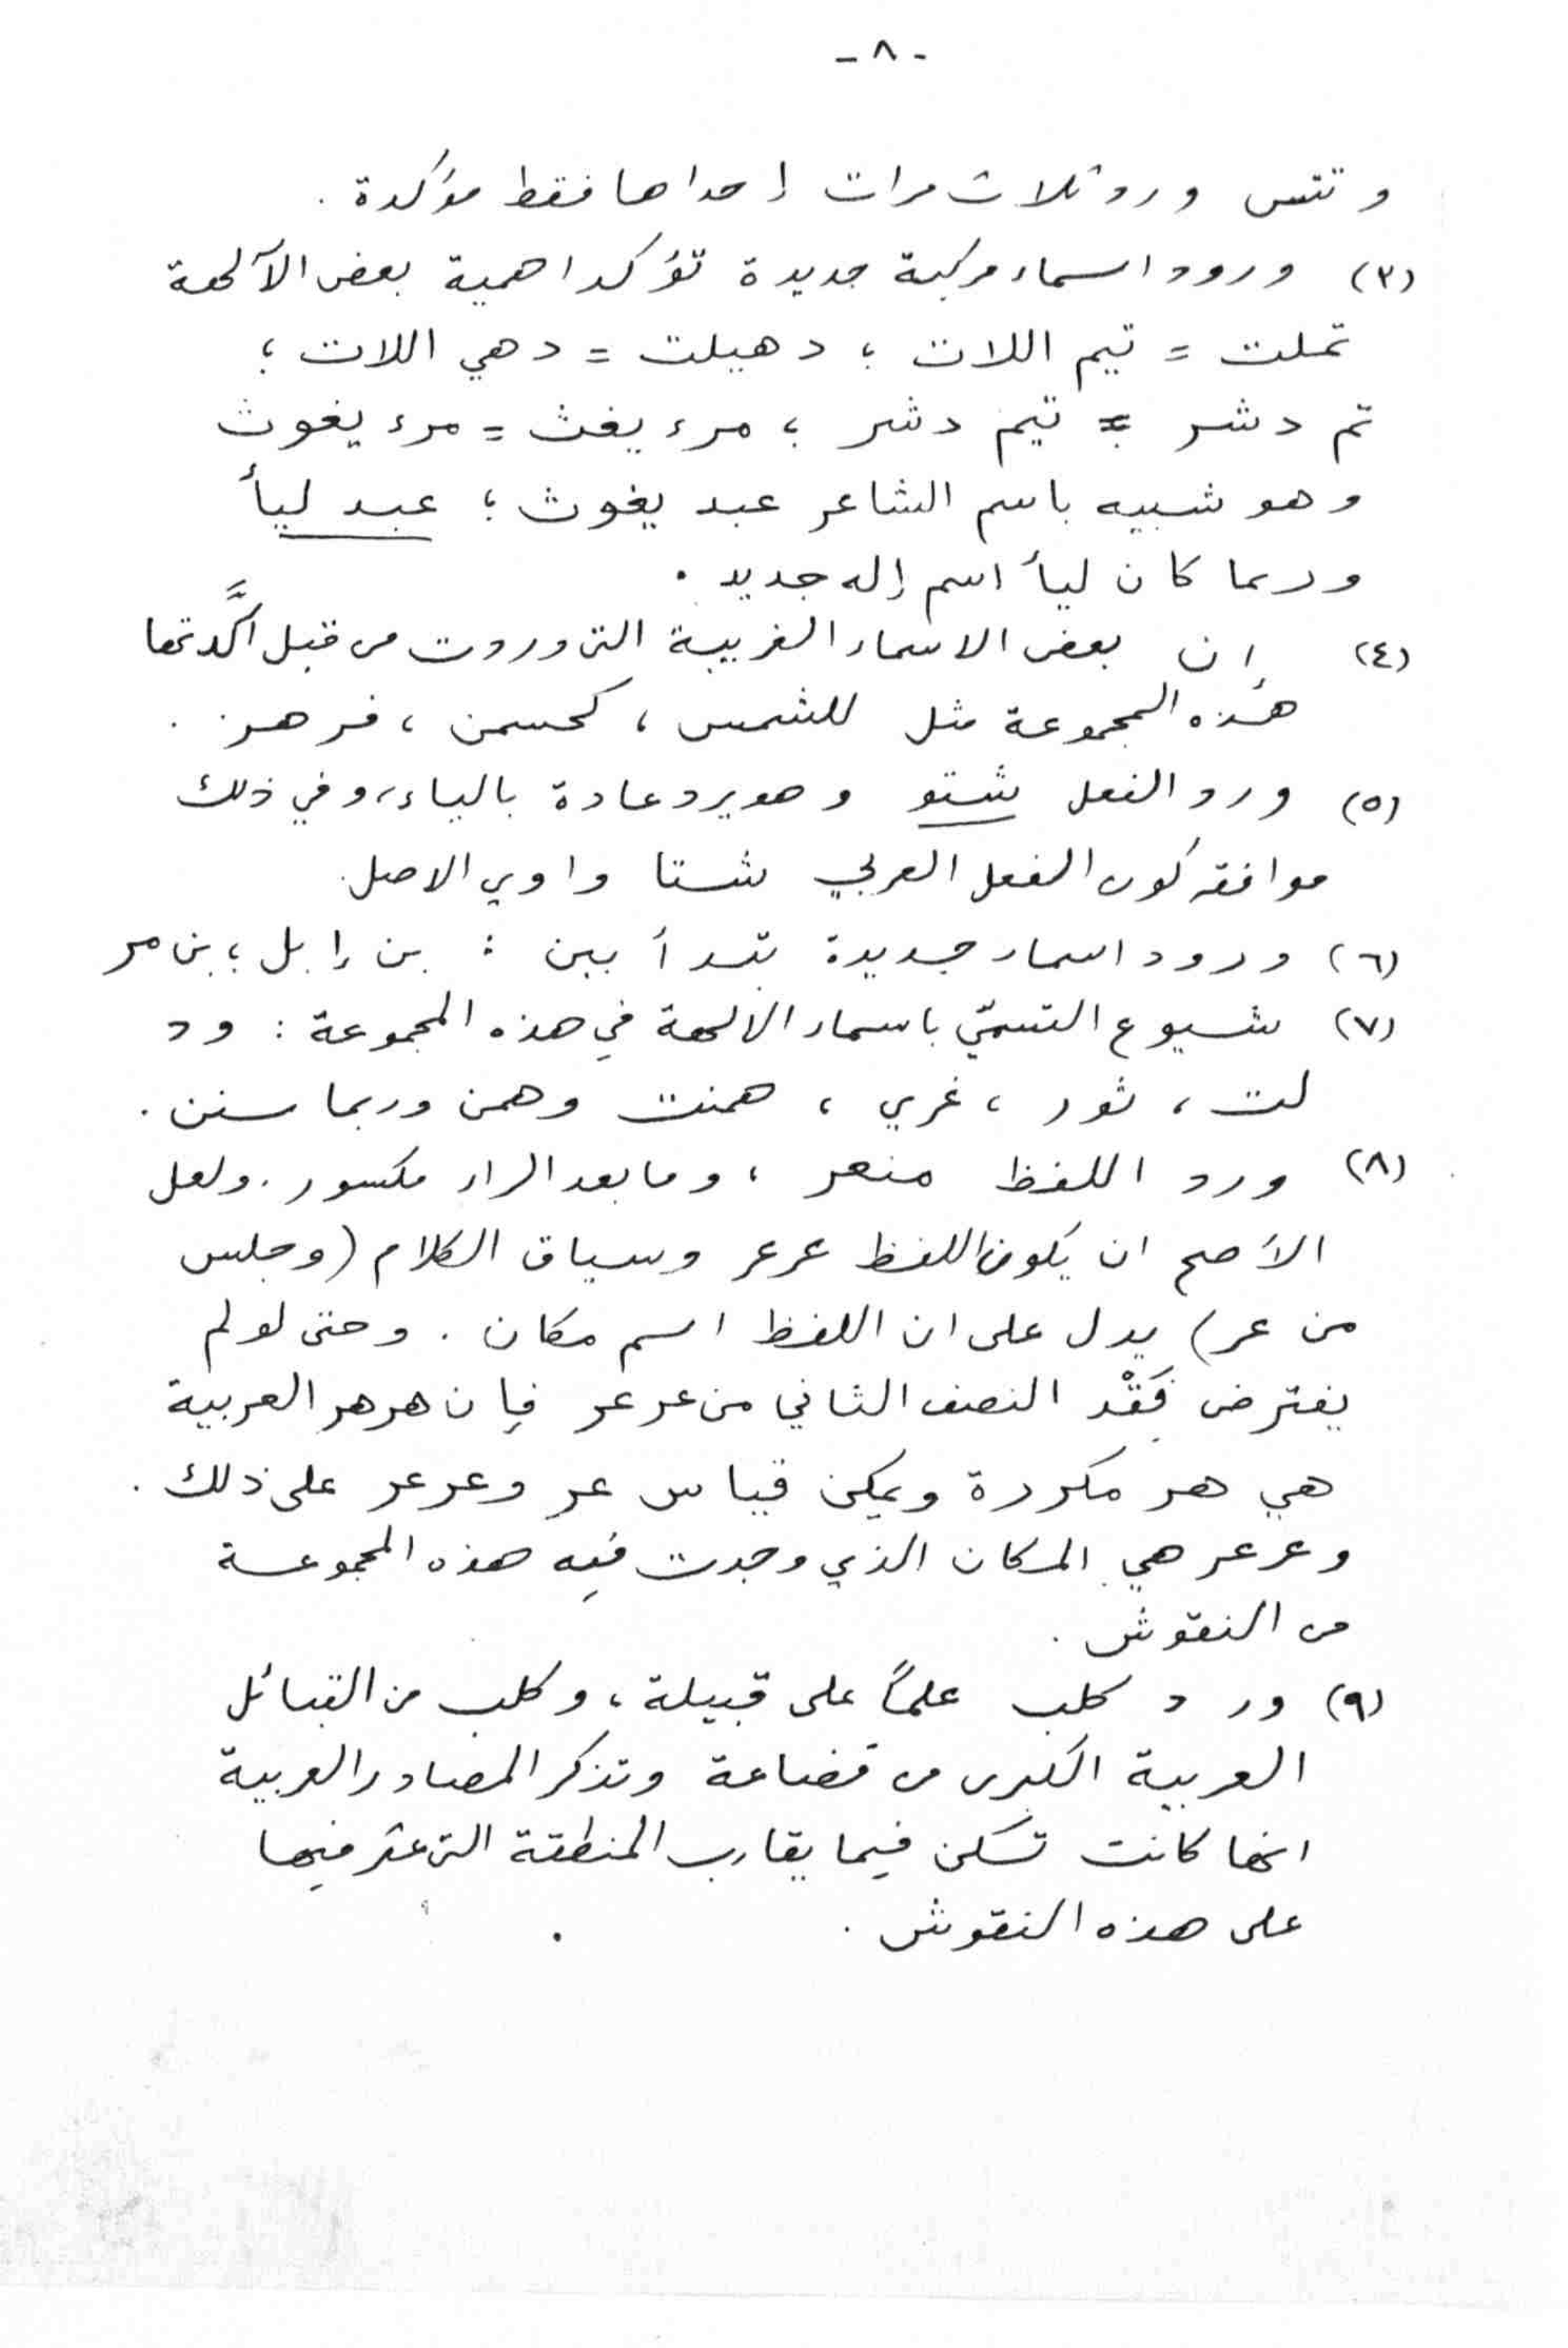 - ٨ -
وتتس ورد ثلاث مرات إحداها فقط مؤكدة .
(٣) ورود اسماء مركبة جديدة تؤكد اهمية بعض الآلهة
تملت = تيم اللات ؛ دهيلت = دهي اللات ؛
تم دشر = تيم دشر ؛ مرء يغث = مرء يغوث
وهو شبيه باسم الشاعر عبد يغوث ؛ عبد ليأ
وربما كان ليأ اسم إله جديد .
(٤) إن بعض الاسماء الغريبة التي وردت من قبل اكَّدتها
هذه المجموعة مثل للشمس ، كحسمن ، فرهز .
(٥) ورد الفعل شتو وهو يرد عادة بالياء، وفي ذلك
موافقه كون الفعل العربي شتا واوي الاصل.
(٦) ورود اسماء جديدة تبدأ ببن : بن إبل ؛ بن مر
(٧) شيوع التسمّي باسماء الالهة في هذه المجموعة : ود
لت ، ثور ، غري ، همنت وهمن وربما سنن .
(٨) ورد اللفظ منعر ، وما بعد الراء مكسور. ولعل
الأصح ان يكون اللفظ عرعر وسياق الكلام (وجلس
من عر) يدل على ان اللفظ اسم مكان . وحتى لو لم
يفترض فَقْد النصف الثاني من عرعر فإن هرهر العربية
هي هر مكررة ويمكن قياس عر وعرعر على ذلك .
وعرعر هي المكان الذي وجدت فيه هذه المجموعة
من النقوش .
(٩) ورد كلب علماً على قبيلة ، وكلب من القبائل
العربية الكبرى من قضاعة وتذكر المصادر العربية
انها كانت تسكن فيما يقارب المنطقة التي عثر فيها
على هذه النقوش .